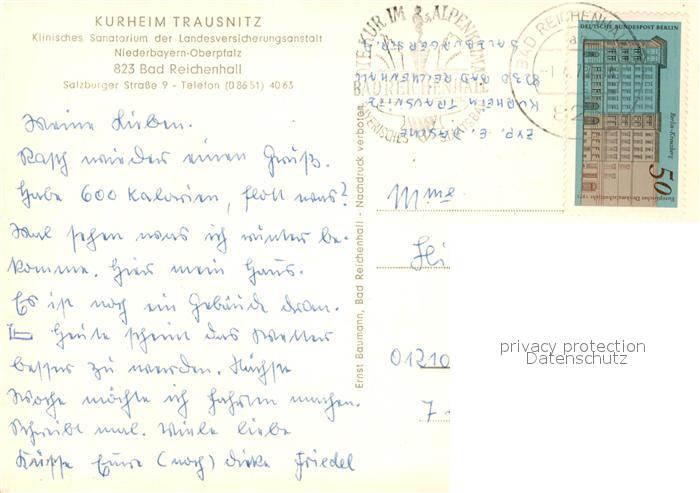 KURHEIM TRAUSNITZ
Klinisches Sanatorium der Landesversicherungsanstalt
Niederbayern-Oberpfalz
823 Bad Reichenhall
Salzburger Straße 9 - Telefon (08651) 4063
Meine Lieben.
Rasch wieder einen Gruß.
Habe 600 Kalorien, flott was?
Mal sehen was ich runter be-
komme. Hier mein Haus.
Es ist noch ein Gebäude dran.
Heute scheint das Wetter
besser zu werden. Nächste
Woche möchte ich fahren machen.
Schreibt mal. Viele liebe
Küsse Eure (noch) dicke Friedel
Ernst Baumann, Bad Reichenhall - Nachdruck verboten
KUR IM ALPENKLIMA
BAD REICHENHALL
BAYERISCHES STAATSBAD
BAD REICHENHALL
a
82
DEUTSCHE BUNDESPOST BERLIN
Berlin-Kreuzberg
Europäisches Denkmalschutzjahr 1975
50
KURHEIM TRAUSNITZ
8230 BAD REICHENHALL
SALZBURGER STR. 9
Mme
01210
7
privacy protection
Datenschutz